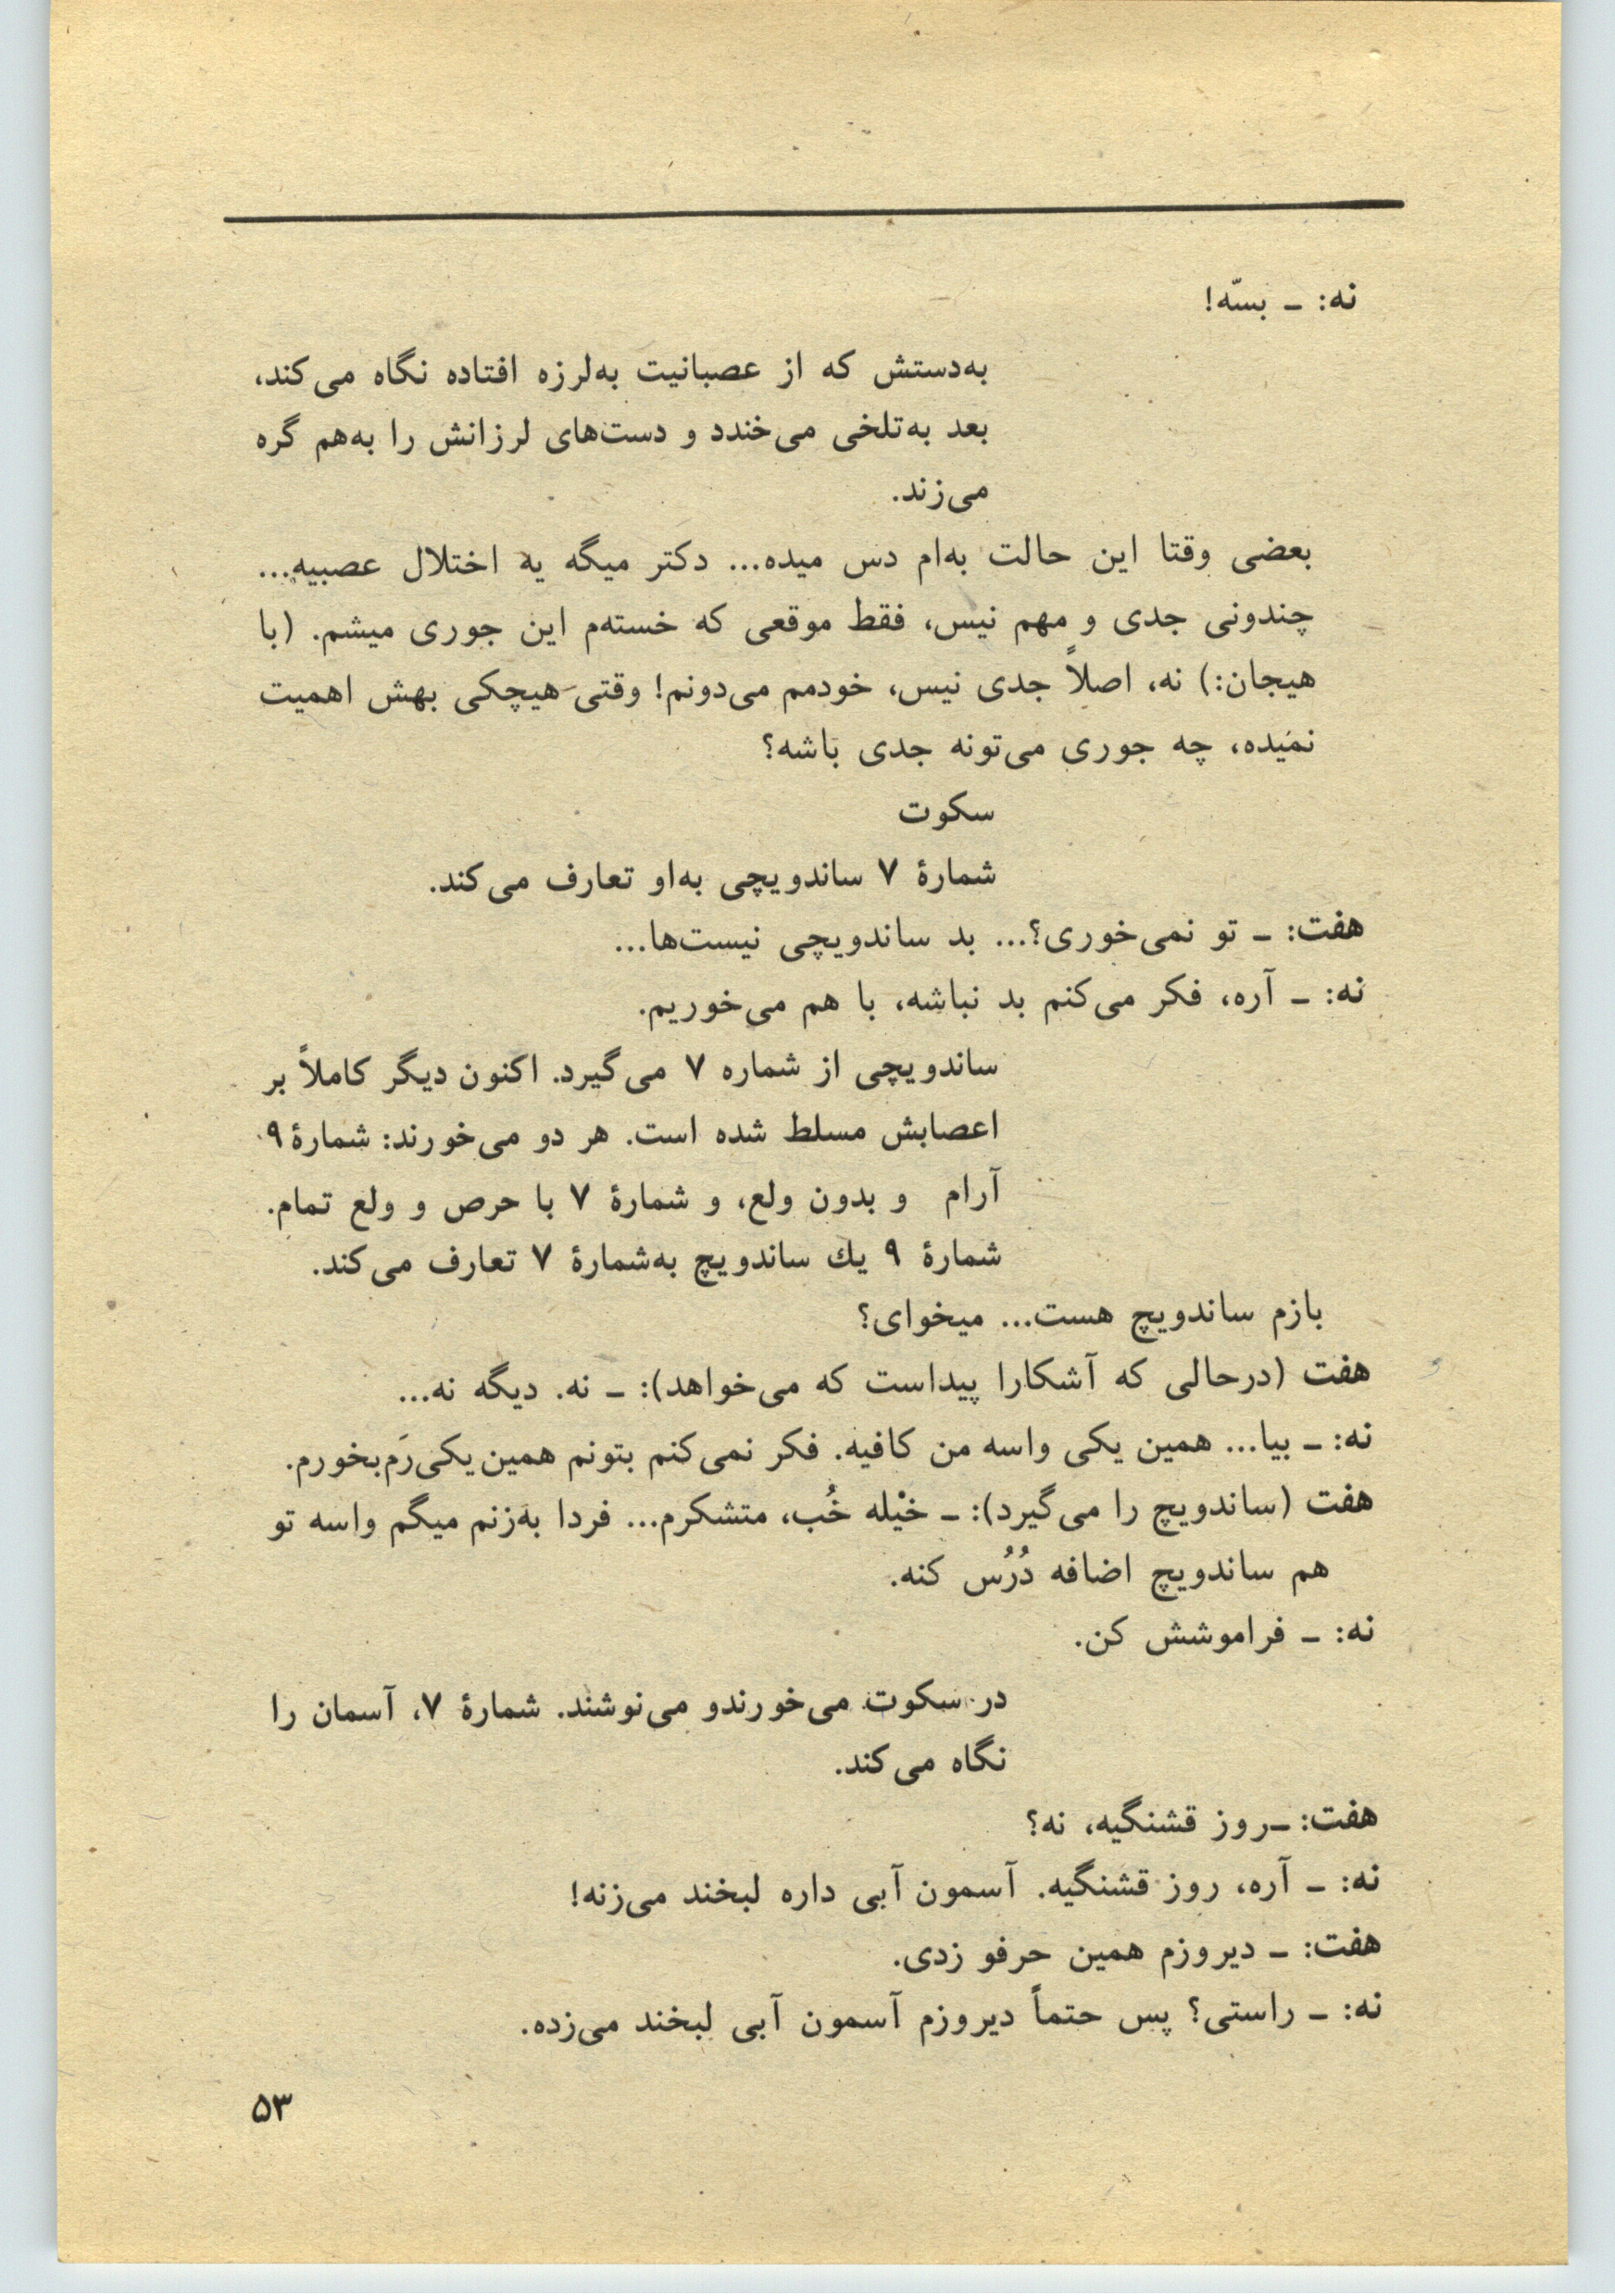 نه: ـ بسّه!
به‌دستش که از عصبانیت به‌لرزه افتاده نگاه می‌کند،
بعد به‌تلخی می‌خندد و دست‌های لرزانش را به‌هم گره
می‌زند.
بعضی وقتا این حالت به‌ام دس میده... دکتر میگه یه اختلال عصبیه...
چندونی جدی و مهم نیس، فقط موقعی که خسته‌م این جوری میشم. (با
هیجان:) نه، اصلاً جدی نیس، خودمم می‌دونم! وقتی هیچکی بهش اهمیت
نمیده، چه جوری می‌تونه جدی باشه؟
سکوت
شمارهٔ ۷ ساندویچی به‌او تعارف می‌کند.
هفت: ـ تو نمی‌خوری؟... بد ساندویچی نیست‌ها...
نه: ـ آره، فکر می‌کنم بد نباشه، با هم می‌خوریم.
ساندویچی از شماره ۷ می‌گیرد. اکنون دیگر کاملاً بر
اعصابش مسلط شده است. هر دو می‌خورند: شمارهٔ ۹
آرام و بدون ولع، و شمارهٔ ۷ با حرص و ولع تمام.
شمارهٔ ۹ یك ساندویچ به‌شمارهٔ ۷ تعارف می‌کند.
بازم ساندویچ هست... میخوای؟
هفت (درحالی که آشکارا پیداست که می‌خواهد): ـ نه. دیگه نه...
نه: ـ بیا... همین یکی واسه من کافیه. فکر نمی‌کنم بتونم همین یکی‌رَم بخورم.
هفت (ساندویچ را می‌گیرد): ـ خیْله خُب، متشکرم... فردا به‌زنم میگم واسه تو
هم ساندویچ اضافه دُرُس کنه.
نه: ـ فراموشش کن.
در سکوت می‌خورندو می‌نوشند. شمارهٔ ۷، آسمان را
نگاه می‌کند.
هفت: ـ روز قشنگیه، نه؟
نه: ـ آره، روز قشنگیه. آسمون آبی داره لبخند می‌زنه!
هفت: ـ دیروزم همین حرفو زدی.
نه: ـ راستی؟ پس حتماً دیروزم آسمون آبی لبخند می‌زده.
۵۳